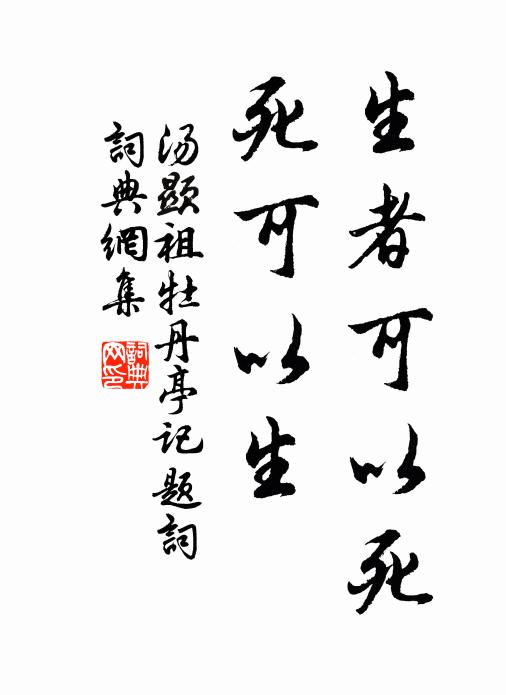 生者可以死
死可以生
汤显祖牡丹亭记题詞
詞典網集
詞典网印